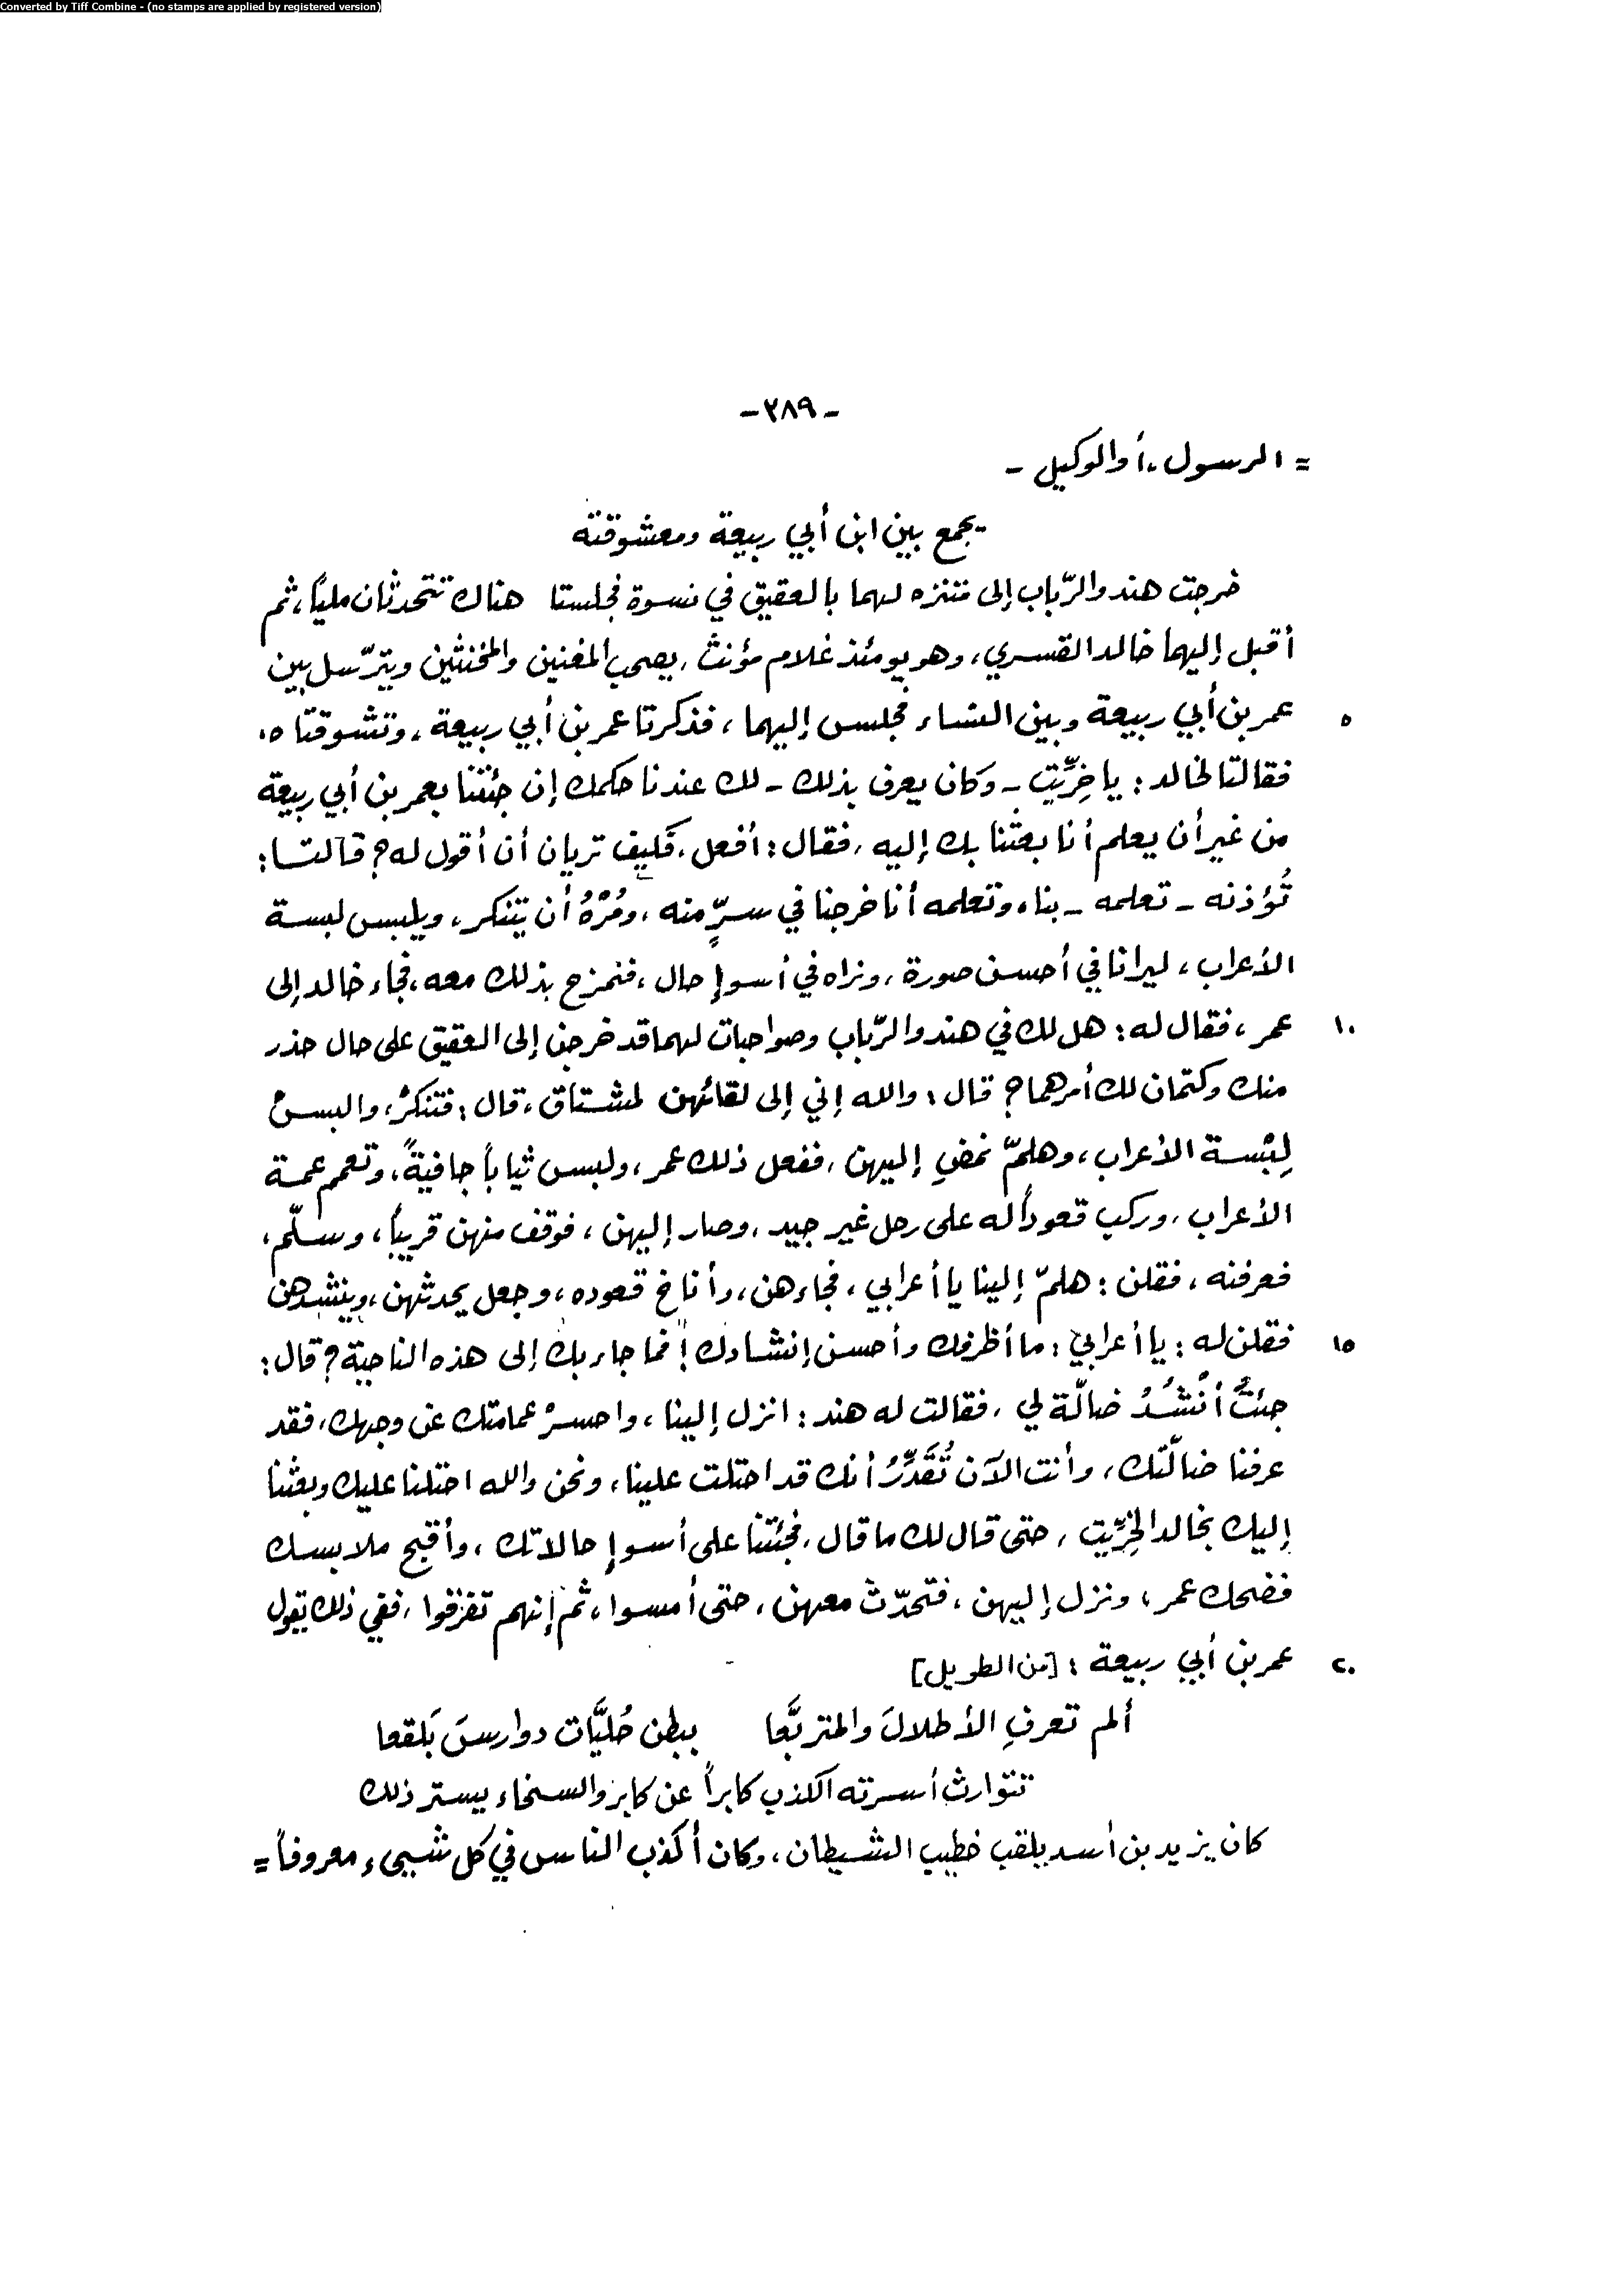 Converted by Tiff Combine - (no stamps are applied by registered version)
- ٢٨٩ -
= الرسول، أو الوكيل -
يجمع بين ابن أبي ربيعة ومعشوقته
خرجت هند والرّباب إلى متنزه لهما بالعقيق في نسوة فجلستا هناك تتحدثان مليّاً، ثم
أقبل إليهما خالد القسري، وهو يومئذ غلام مؤنث، يصحب المغنين والمخنثين ويترّسل بين
٥ عمر بن أبي ربيعة وبين النساء فجلس إليهما، فذكرتا عمر بن أبي ربيعة، وتشوقتاه.
فقالتا لخالد: يا خِرِّيت - وكان يعرف بذلك - لك عندنا حكمك إن جئتنا بعمر بن أبي ربيعة
من غير أن يعلم أنا بعثنا بك إليه، فقال: أفعل، فكيف تريان أن أقول له؟ قالتا:
تُؤذنه - تعلمه - بنا، وتعلمه أنا خرجنا في سرٍّ منه، ومُرْهُ أن يتنكر، ويلبس لبسة
الأعراب، ليرانا في أحسن صورة، ونراه في أسوإ حال، فنمزح بذلك معه، فجاء خالد إلى
١٠ عمر، فقال له: هل لك في هند والرّباب وصواحبات لهما قد خرجن إلى العقيق على حال حذر
منك وكتمان لك أمرهما؟ قال: والله إني إلى لقائهن لمشتاق، قال: فتنكرْ، والبسْ
لِبْسة الأعراب، وهلمّ نمضِ إليهن، ففعل ذلك عمر، ولبس ثياباً جافيةً، وتعمم عمة
الأعراب، وركب قعوداً له على رحل غير جيد، وصار إليهن، فوقف منهن قريباً، وسلّم،
فعرفنه، فقلن: هلمّ إلينا يا أعرابي، فجاءهن، وأناخ قعوده، وجعل يحدثهن، وينشدهن
١٥ فقلن له: يا أعرابيّ: ما أظرفك وأحسن إنشادك! فما جاء بك إلى هذه الناحية؟ قال:
جئتُ أنْشُدُ ضالّة لي، فقالت له هند: انزل إلينا، واحسرْ عمامتك عن وجهك، فقد
عرفنا ضالّتك، وأنت الآن تُقَدِّرُ أنك قد احتلت علينا، ونحن والله احتلنا عليك وبعثنا
إليك بخالد الخِرِّيت، حتى قال لك ما قال، فجئتنا على أسوإ حالاتك، وأقبح ملابسك
فضحك عمر، ونزل إليهن، فتحدّث معهن، حتى أمسوا، ثم إنهم تفرّقوا، ففي ذلك يقول
٢٠ عمر بن أبي ربيعة: [من الطويل]
ألم تعرفِ الأطلالَ والمتربَّعا ببطن حُليَّات دوارسَ بَلقعا
تتوارث أسرته الكذب كابراً عن كابر والسخاء يستر ذلك
كان يزيد بن أسد يلقب خطيب الشيطان، وكان أكذب الناس في كل شيىء معروفاً =